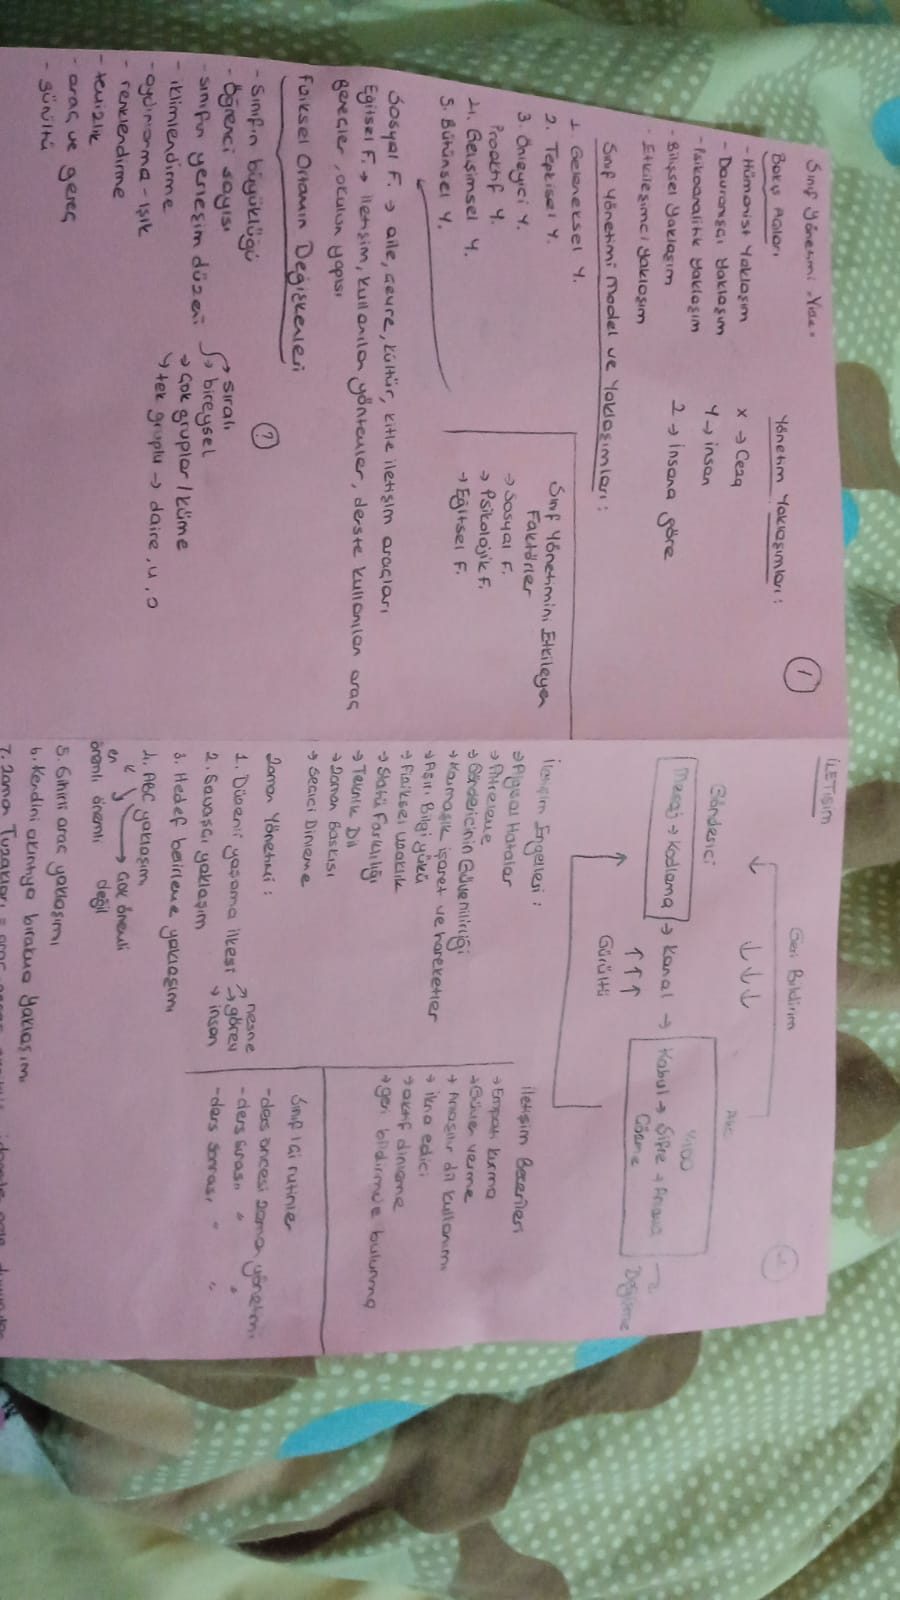 Sınıf Yönetimi
Bakış Açıları
- Hümanist Yaklaşım
- Davranışçı Yaklaşım
- Psikoanalitik Yaklaşım
- Bilişsel Yaklaşım
- Etkileşimci Yaklaşım
Yönetim Yaklaşımları:
X → Ceza
Y → insan
Z → insana göre
1
Sınıf Yönetimi Model ve Yaklaşımları:
1. Geleneksel Y.
2. Tepkisel Y.
3. Önleyici Y.
Proaktif Y.
4. Gelişimsel Y.
5. Bütünsel Y.
Sınıf Yönetimini Etkileyen
Faktörler
→ Sosyal F.
→ Psikolojik F.
→ Eğitsel F.
Sosyal F. → aile, çevre, kültür, kitle iletişim araçları
Eğitsel F. → iletişim, kullanılan yöntemler, derste kullanılan araç
gereçler, okulun yapısı
Fiziksel Ortamın Değişkenleri
?
- Sınıfın büyüklüğü
- Öğrenci sayısı
- Sınıfın yerleşim düzeni
→ sıralı
→ bireysel
→ çok gruplar / küme
→ tek gruplu → daire, u, o
- iklimlendirme
- aydınlanma - ışık
- renklendirme
- temizlik
- araç ve gereç
- gürültü
İLETİŞİM
2
Geri Bildirim
Gönderici
Mesaj → Kodlama → Kanal → Kabul → Şifre →
Çözme
Gürültü
İletişim Engelleri:
→ Algısal Hatalar
→ Filtreleme
→ Göndericinin Güvenilirliği
→ Karmaşık işaret ve hareketler
→ Aşırı Bilgi yükü
→ Fiziksel uzaklık
→ Statü Farklılığı
→ Teknik Dil
→ Zaman Baskısı
→ Seçici Dinleme
İletişim Becerileri
→ Empati kurma
→ Güven verme
→ Anlaşılır dil kullanımı
→ ikna edici
→ aktif dinleme
→ geri bildirimde bulunma
Zaman Yönetimi:
1. Düzenli yaşama ilkesi
nesne
→ görev
→ insan
2. Savaşçı yaklaşım
3. Hedef belirleme yaklaşımı
4. ABC yaklaşımı
en
önemli
önemli
çok önemli
değil
5. Sihirli araç yaklaşımı
6. Kendini akıntıya bırakma yaklaşımı
7. Zaman Tuzakları
Sınıf içi rutinler
- ders öncesi zaman yönetimi
- ders sırası " "
- ders sonrası " "